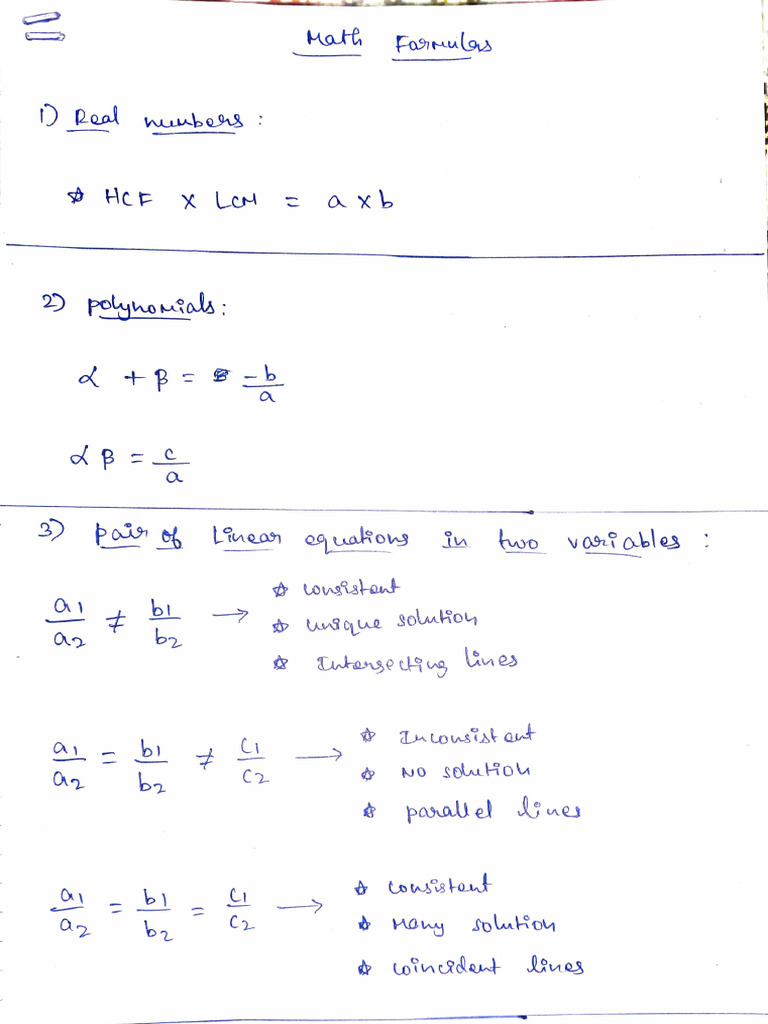 Math Farmulas
1) Real numbers :
☆ HCF × LCM = a × b
2) polynomials :
α + β = -b/a
α β = c/a
3) pair of Linear equations in two variables :
a1/a2 ≠ b1/b2 → ☆ consistent
☆ unique solution
☆ Intersecting lines
a1/a2 = b1/b2 ≠ c1/c2 → ☆ Inconsistent
☆ No solution
☆ parallel lines
a1/a2 = b1/b2 = c1/c2 → ☆ consistent
☆ Many solution
☆ coincident lines